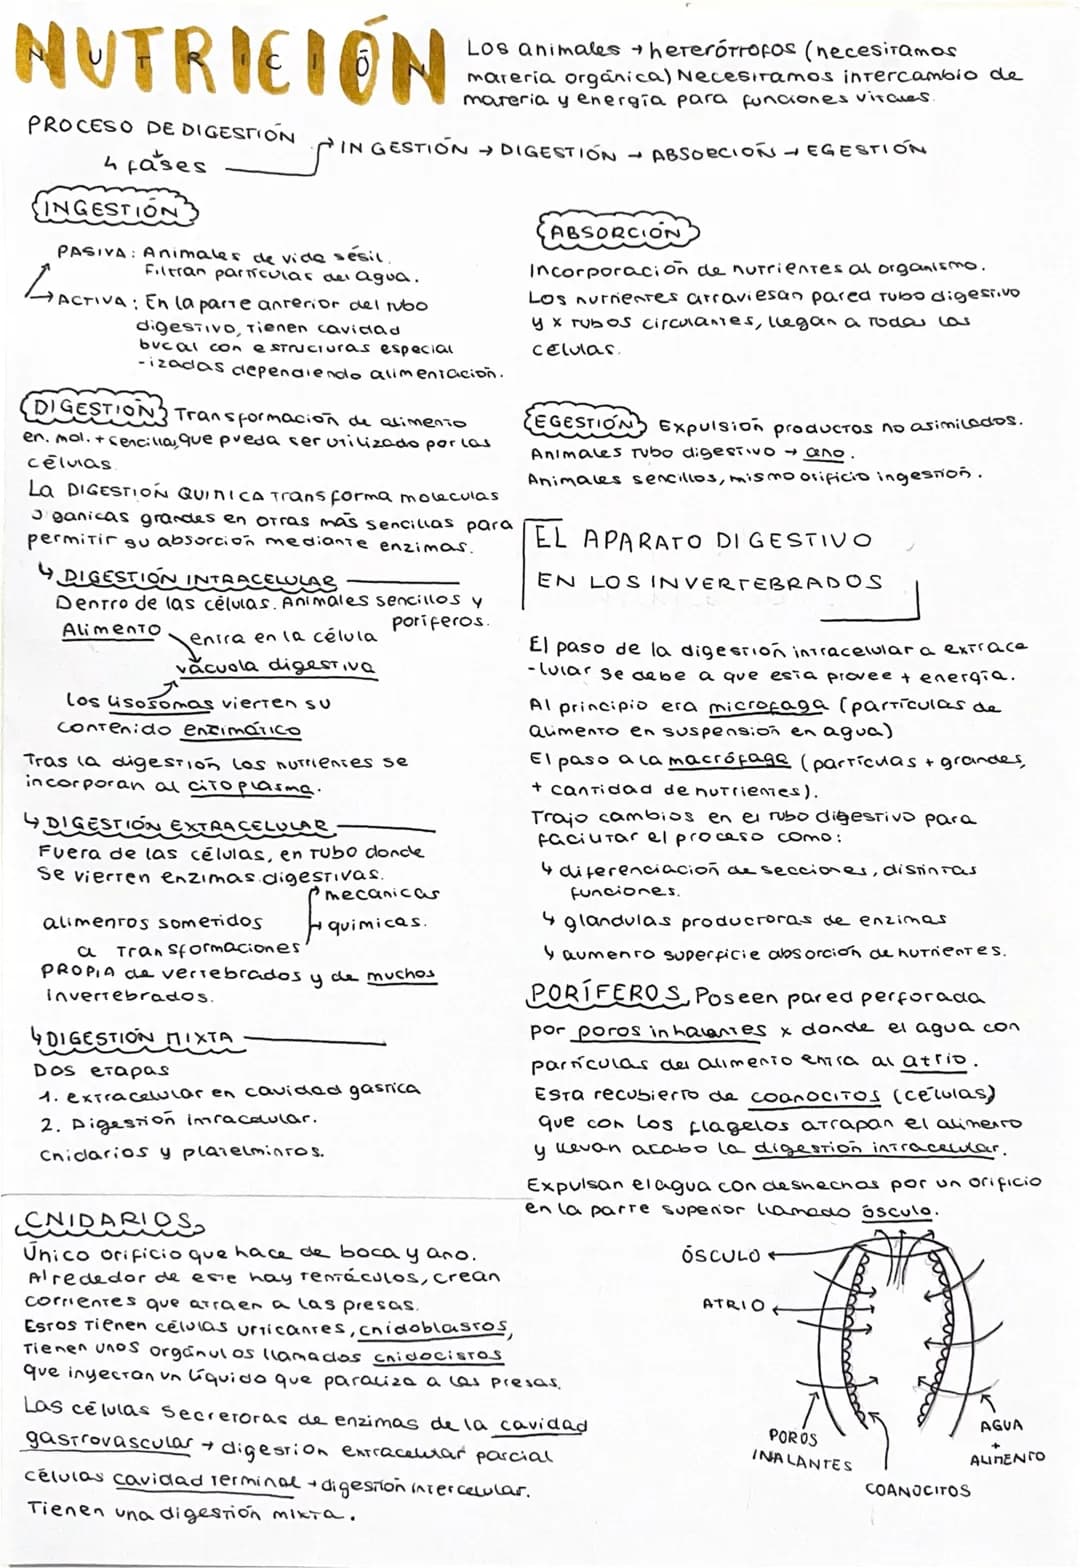 NUTRICIÓN
NUTRICIÓN
Los animales → heterótrofos (necesitamos
materia orgánica) Necesitamos intercambio de
materia y energía para funciones vitales.
PROCESO DE DIGESTIÓN
4 fases
INGESTIÓN → DIGESTIÓN → ABSORCIÓN → EGESTIÓN
INGESTIÓN
PASIVA: Animales de vida sésil.
Filtran partículas del agua.
ACTIVA: En la parte anterior del tubo
digestivo, tienen cavidad
bucal con estructuras especial
-izadas dependiendo alimentación.
DIGESTIÓN Transformación de alimento
en. mol. + sencillas, que pueda ser utilizado por las
células
La DIGESTIÓN QUINICA transforma moleculas
organicas grandes en otras más sencillas para
permitir su absorción mediante enzimas.
↳ DIGESTIÓN INTRACELULAR
Dentro de las células. Animales sencillos y
poríferos.
Alimento
entra en la célula
vacuola digestiva
los lisosomas vierten su
contenido enzimático
Tras la digestión los nutrientes se
incorporan al citoplasma.
↳ DIGESTIÓN EXTRACELULAR
Fuera de las células, en tubo donde
se vierten enzimas digestivas.
mecanicas
alimentos sometidos
quimicas.
a transformaciones
PROPIA de vertebrados y de muchos
invertebrados.
↳ DIGESTIÓN MIXTA
Dos etapas
1. extracelular en cavidad gastrica
2. Digestión intracelular.
Cnidarios y platelmintos.
CNIDARIOS
Único orificio que hace de boca y ano.
Alrededor de este hay tentáculos, crean
corrientes que atraen a las presas.
Estos tienen células urticantes, cnidoblastos,
Tienen unos orgánulos llamados cnidocistos
que inyectan un líquido que paraliza a las presas.
Las células secretoras de enzimas de la cavidad
gastrovascular → digestión extracelular parcial
células cavidad terminal → digestión intercelular.
Tienen una digestión mixta.
ABSORCIÓN
Incorporación de nutrientes al organismo.
Los nutrientes atraviesan pared tubo digestivo
y x tubos circulantes, llegan a todas las
células.
EGESTIÓN Expulsión productos no asimilados.
Animales tubo digestivo → ano.
Animales sencillos, mismo orificio ingestión.
EL APARATO DIGESTIVO
EN LOS INVERTEBRADOS
El paso de la digestión intracelular a extrace
-lular se debe a que esta provee + energía.
Al principio era microfaga (partículas de
alimento en suspensión en agua)
El paso a la macrófaga (partículas + grandes,
+ cantidad de nutrientes).
Trajo cambios en el tubo digestivo para
facilitar el proceso como:
↳ diferenciación de secciones, distintas
funciones.
↳ glandulas productoras de enzimas
↳ aumento superficie absorción de nutrientes.
PORÍFEROS Poseen pared perforada
por poros inhalantes x donde el agua con
partículas del alimento entra al atrio.
Esta recubierto de coanocitos (células)
que con los flagelos atrapan el alimento
y llevan acabo la digestión intracelular.
Expulsan el agua con deshechos por un orificio
en la parte superior llamado ósculo.
ÓSCULO
ATRIO
POROS
INALANTES
COANOCITOS
AGUA
+
ALIMENTO